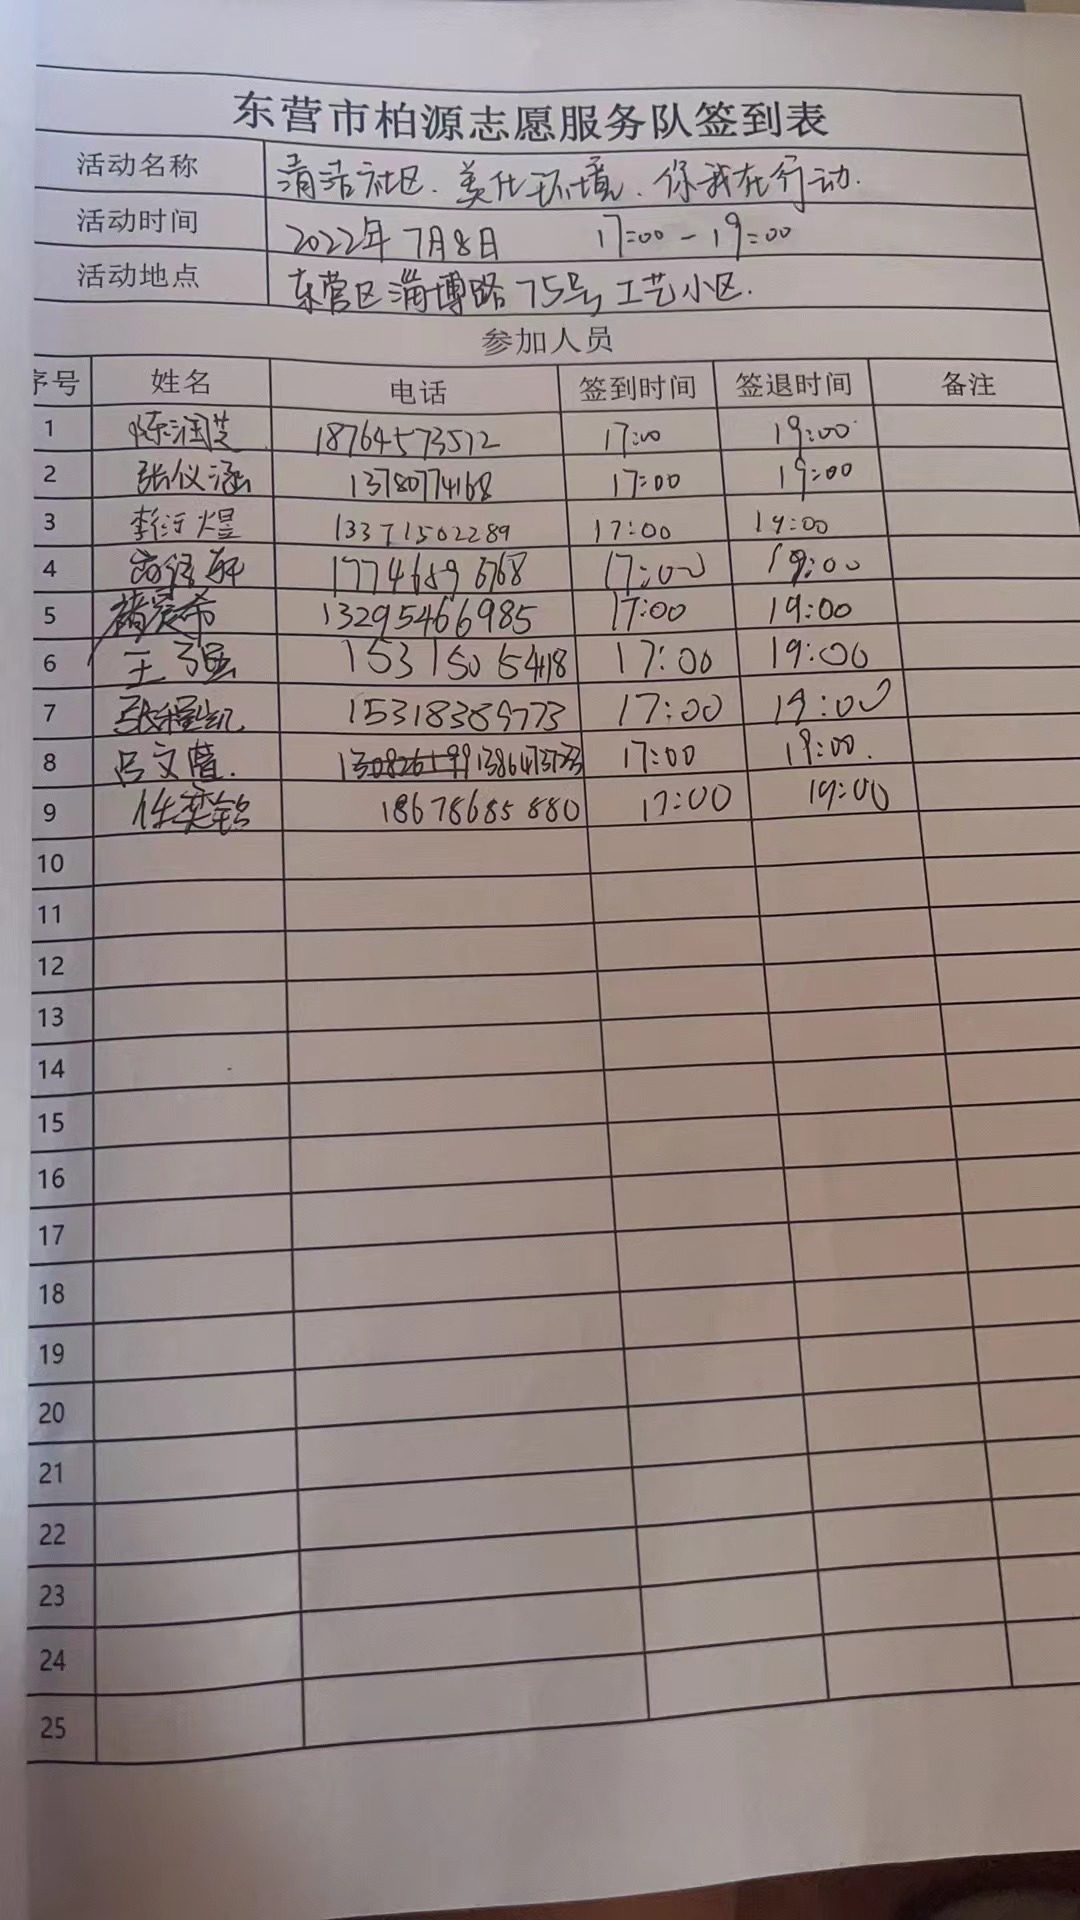 东营市柏源志愿服务队签到表
活动名称 清洁社区.美化环境.你我在行动.
活动时间 2022年7月8日 17:00-19:00
活动地点 东营区淄博路75号,工艺小区.
参加人员
序号 姓名 电话 签到时间 签退时间 备注
1 陈润芝 18764573512 17:00 19:00
2 张仪涵 13780774168 17:00 19:00
3 李衍煜 13371502289 17:00 19:00
4 17746896768 17:00 19:00
5 褚宸希 13295466985 17:00 19:00
6 王强 15315054118 17:00 19:00
7 张程凯 15318389773 17:00 19:00
8 吕文萱. 17:00 19:00.
9 任奕铭 18678685880 17:00 19:00
10
11
12
13
14
15
16
17
18
19
20
21
22
23
24
25